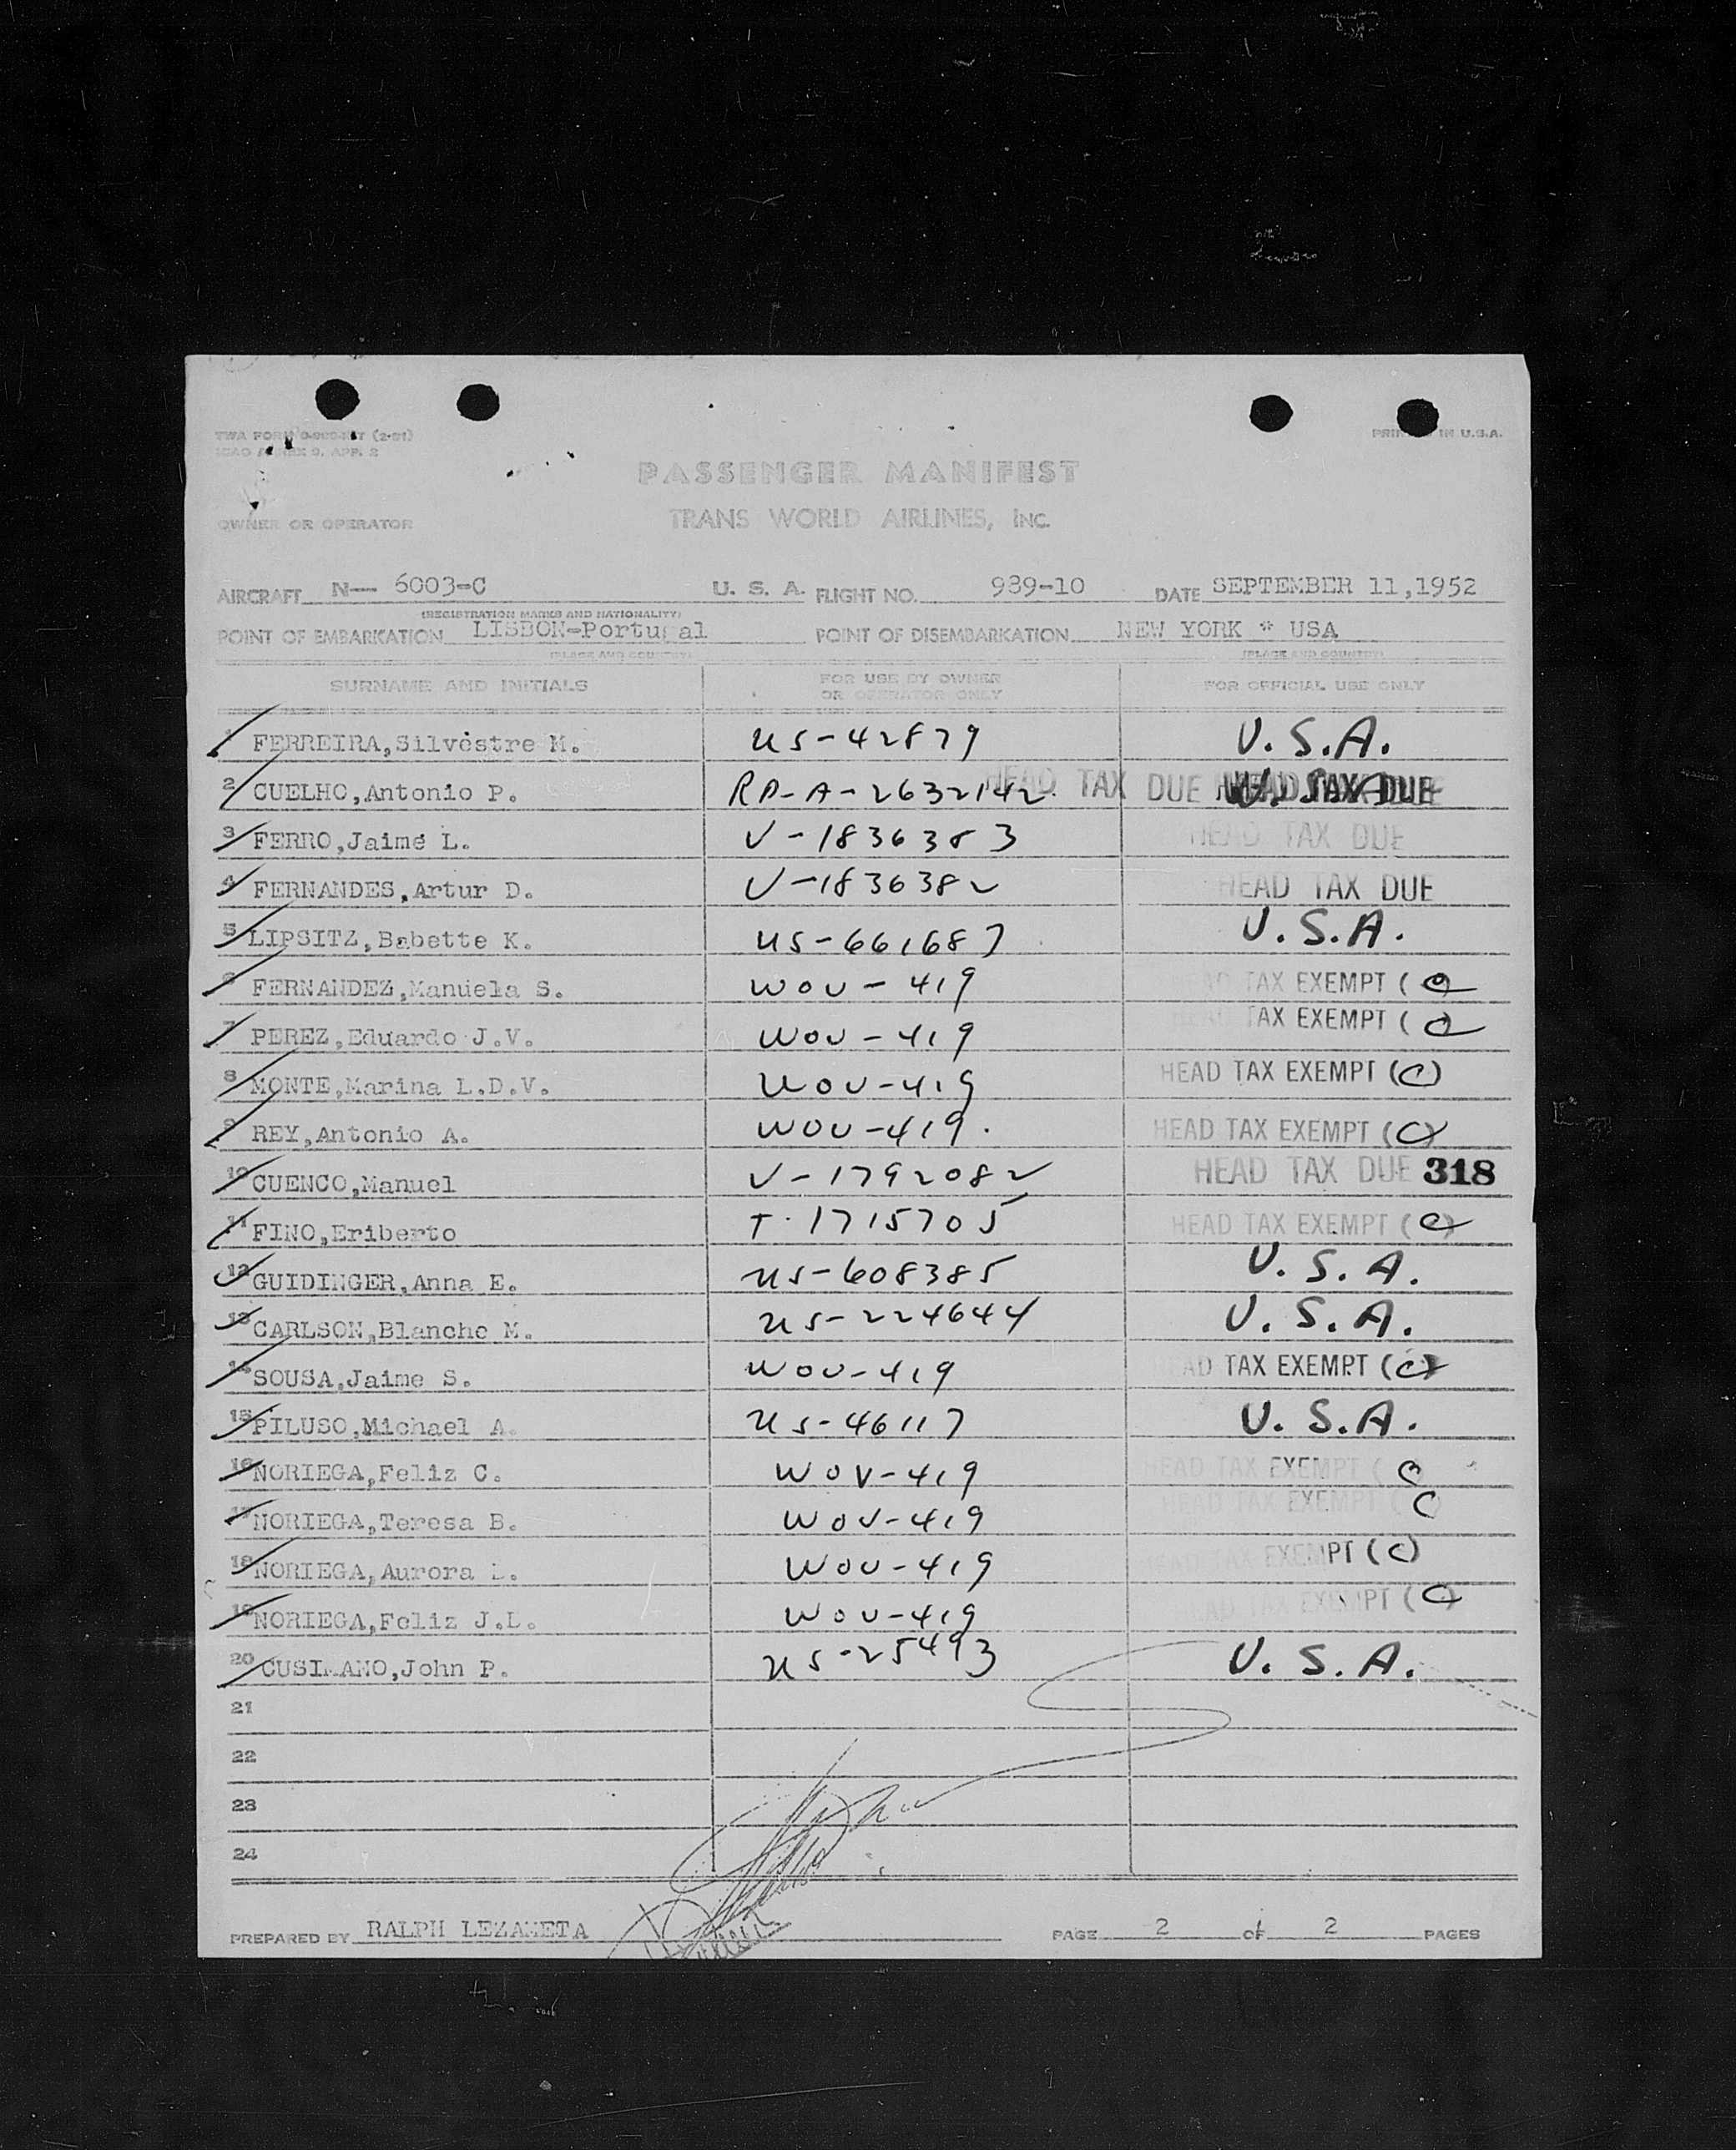 TWA FORM (2-51)
ICAO ANNEX 9, APP. 2
PRINTED IN U.S.A.
PASSENGER MANIFEST
OWNER OR OPERATOR TRANS WORLD AIRLINES, INC.
AIRCRAFT N— 6003-C U. S. A. FLIGHT NO. 989-10 DATE SEPTEMBER 11,1952
(REGISTRATION MARKS AND NATIONALITY)
POINT OF EMBARKATION LISBON-Portugal POINT OF DISEMBARKATION NEW YORK * USA
(PLACE AND COUNTRY) (PLACE AND COUNTRY)
SURNAME AND INITIALS FOR USE BY OWNER OR OPERATOR ONLY FOR OFFICIAL USE ONLY
FERREIRA,Silvestre M. US-42879 U.S.A.
2 CUELHO,Antonio P. RP-A-2632142 HEAD TAX DUE HEAD TAX DUE
3 FERRO,Jaime L. V-1836383 HEAD TAX DUE
4 FERNANDES,Artur D. V-1836382 HEAD TAX DUE
5 LIPSITZ,Babette K. US-661687 U.S.A.
6 FERNANDEZ,Manuela S. WOV-419 HEAD TAX EXEMPT (C)
7 PEREZ,Eduardo J.V. WOV-419 HEAD TAX EXEMPT (C)
8 MONTE,Marina L.D.V. WOV-419 HEAD TAX EXEMPT (C)
9 REY,Antonio A. WOV-419. HEAD TAX EXEMPT (C)
10 CUENCO,Manuel V-1792082 HEAD TAX DUE 318
11 FINO,Eriberto T-1715705 HEAD TAX EXEMPT (C)
12 GUIDINGER,Anna E. US-608385 U.S.A.
13 CARLSON,Blanche M. US-224644 U.S.A.
14 SOUSA,Jaime S. WOV-419 HEAD TAX EXEMPT (C)
15 PILUSO,Michael A. US-46117 U.S.A.
16 NORIEGA,Feliz C. WOV-419 HEAD TAX EXEMPT (C)
17 NORIEGA,Teresa B. WOV-419 HEAD TAX EXEMPT (C)
18 NORIEGA,Aurora L. WOV-419 HEAD TAX EXEMPT (C)
19 NORIEGA,Feliz J.L. WOV-419 HEAD TAX EXEMPT (C)
20 CUSIMANO,John P. US-25493 U.S.A.
21
22
23
24
PREPARED BY RALPH LEZAMETA PAGE 2 of 2 PAGES